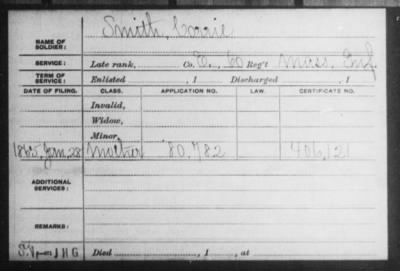 Smith, Corrie
NAME OF SOLDIER:
SERVICE: Late rank, Co. E, 60 Reg't Mass. Inf.
TERM OF SERVICE: Enlisted , 1 Discharged , 1
DATE OF FILING. CLASS. APPLICATION NO. LAW. CERTIFICATE NO.
Invalid,
Widow,
Minor,
1865, Jan, 28 Mother 80,782 406,121
ADDITIONAL SERVICES:
REMARKS:
JHG Died , 1 , at